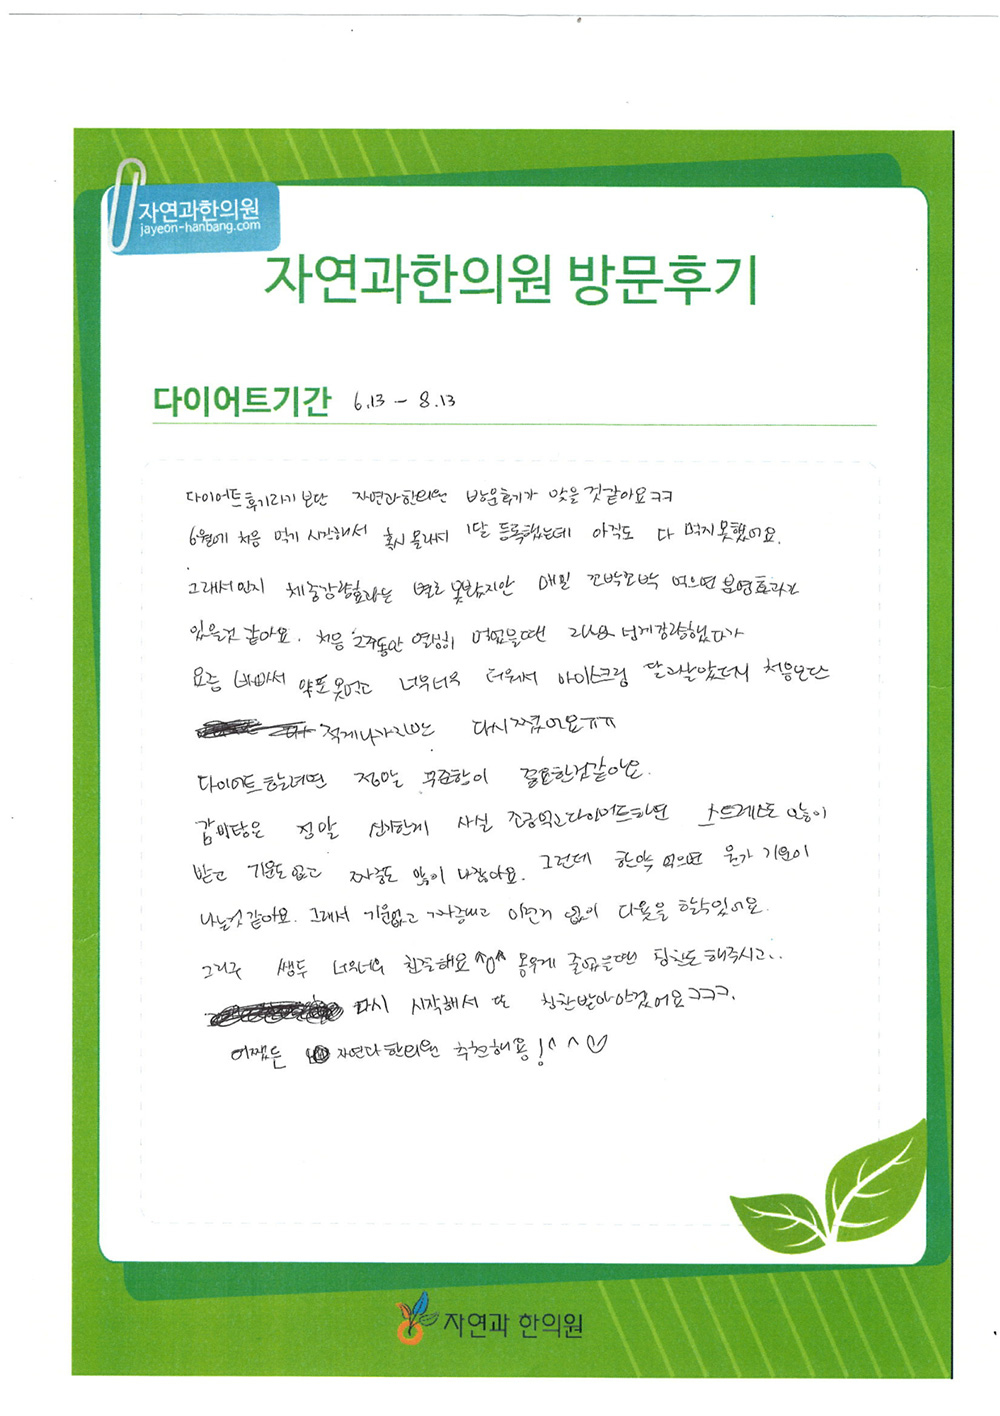 자연과한의원
jayeon-hanbang.com
자연과한의원 방문후기
다이어트기간 6.13 - 8.13
다이어트후기라기 보단 자연과한의원 방문후기가 맞을것같아요ㅋㅋ
6월에 처음 먹기 시작해서 혹시 몰라서 1달 등록했는데 아직도 다 먹지못했어요.
그래서인지 체중감량효과는 별로 못봤지만 매일 꼬박꼬박 먹으면 분명효과가
있을것 같아요. 처음 2주동안 열심히 먹었을때 넘게감량했다가
요즘 바빠서 약도못먹고 너무너무 더워서 아이스크림 달고살았더니 처음보단
적게나가지만 다시쪘어요ㅠㅠ
다이어트하려면 정말 꾸준함이 필요한것같아요.
감비탕은 정말 신기한게 사실 조금먹고다이어트하면 스트레스도 많이
받고 기운도없고 짜증도 많이 나잖아요. 그런데 한약 먹으면 뭔가 기운이
나는것같아요. 그래서 기운없고 짜증내고 이런거 없이 다욧을 할수있어요.
그리구 쌤두 너무너무 친절해요 ^0^ 몸무게 줄었을땐 칭찬도해주시고..
다시 시작해서 또 칭찬받아야겠어요ㅋㅋㅋ.
어쨌든 자연과한의원 추천해용!^^♡
자연과 한의원